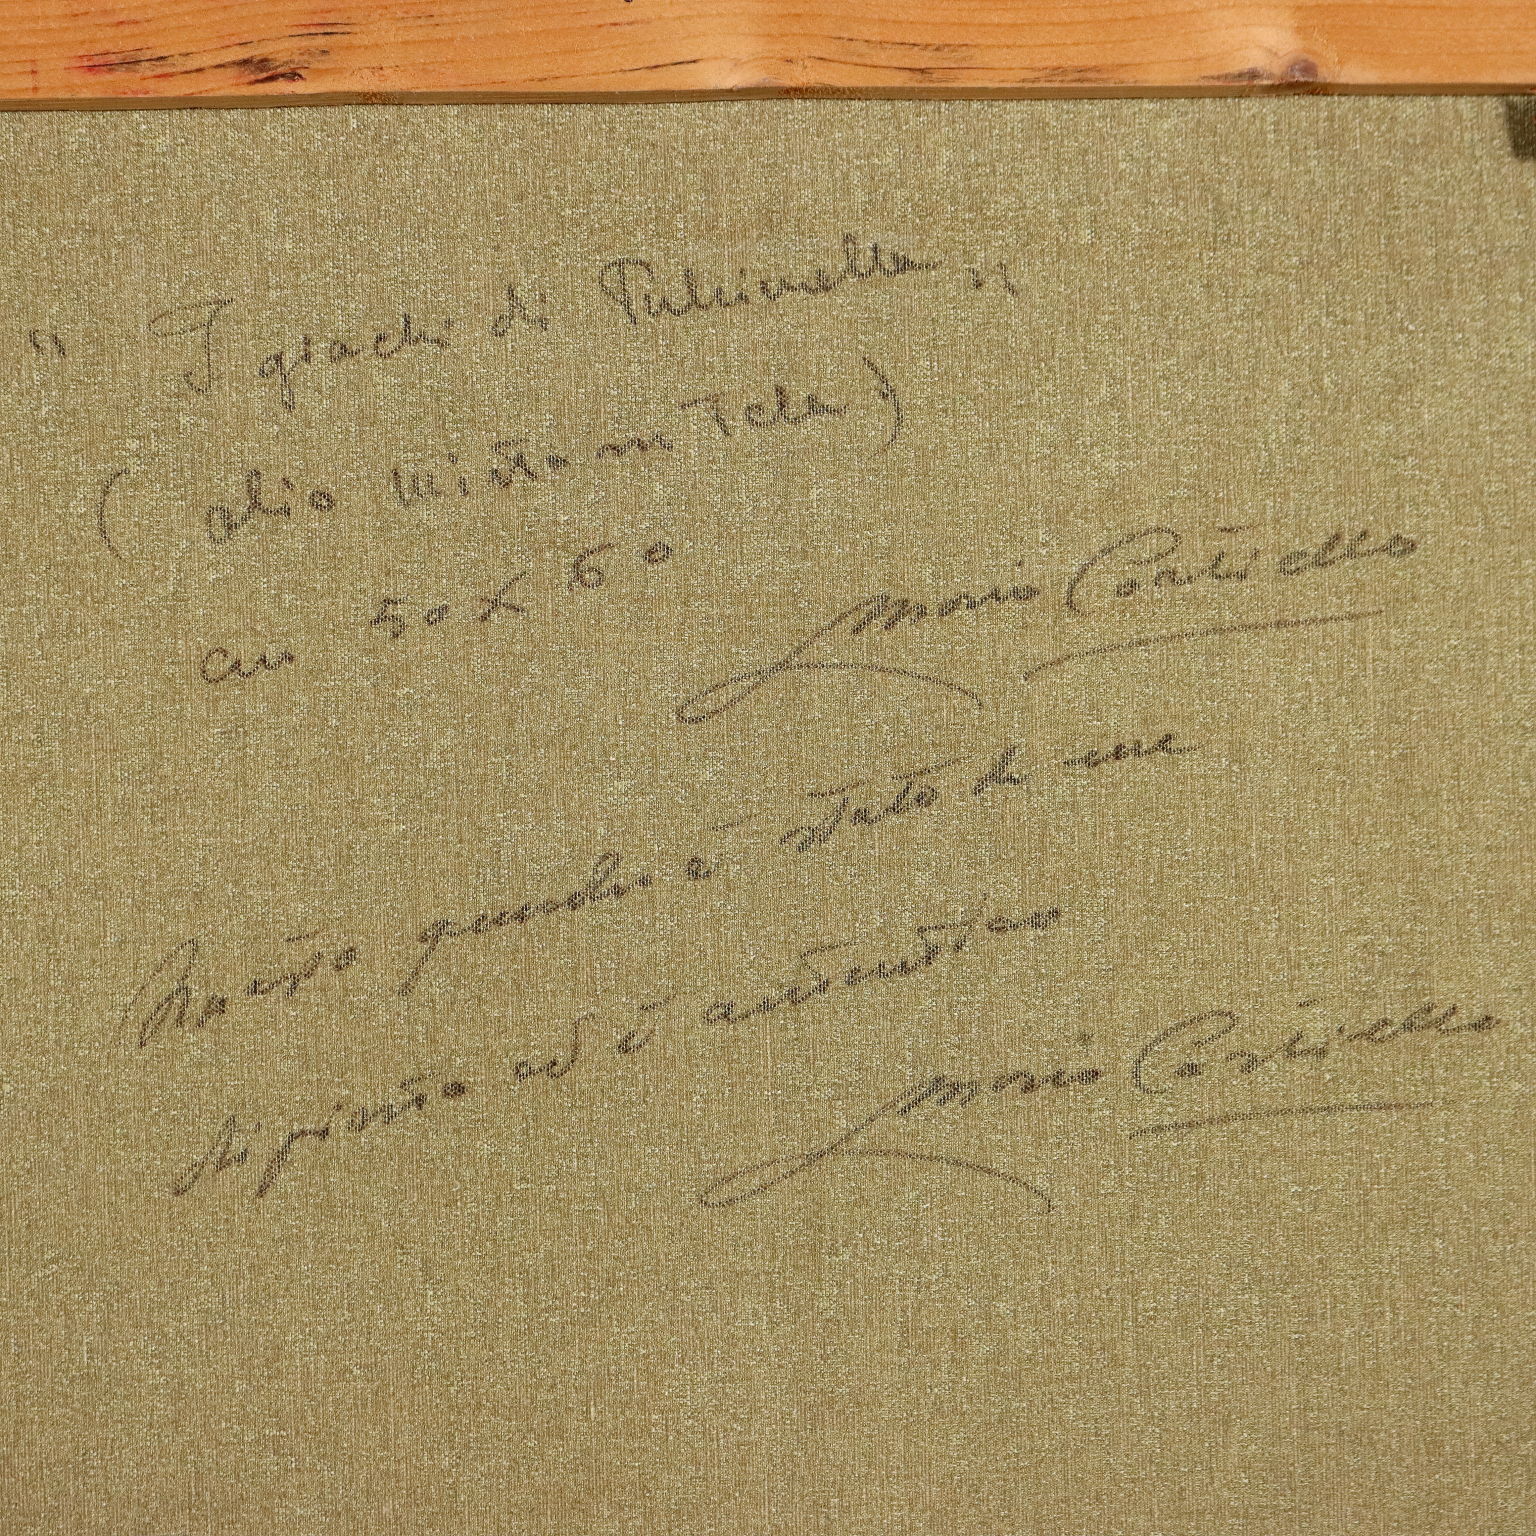 "I giochi di Pulcinella"
(olio misto su Tela)
cm 50 x 60
Mario Cortiello
Questo quadro è stato da me
dipinto ed è autentico
Mario Cortiello